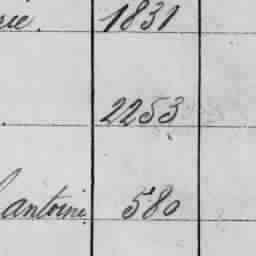 1831
2253
antoine 580